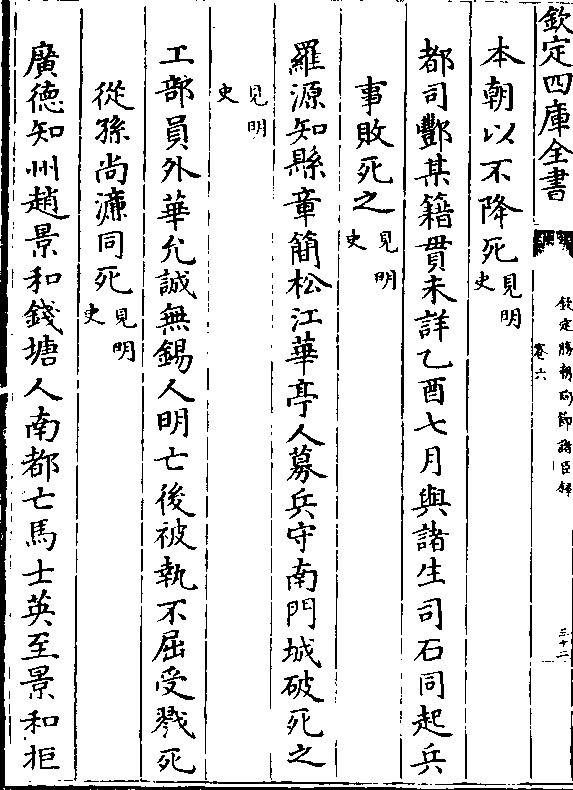 欽定四庫全書
欽定勝朝殉節諸臣錄
卷六
三十二
本朝以不降死見明史
都司酆某籍貫未詳乙酉七月與諸生司石同起兵
事敗死之見明史
羅源知縣章簡松江華亭人募兵守南門城破死之
見明史
工部員外華允誠無錫人明亡後被執不屈受戮死
從孫尚濂同死見明史
廣德知州趙景和錢塘人南都亡馬士英至景和拒